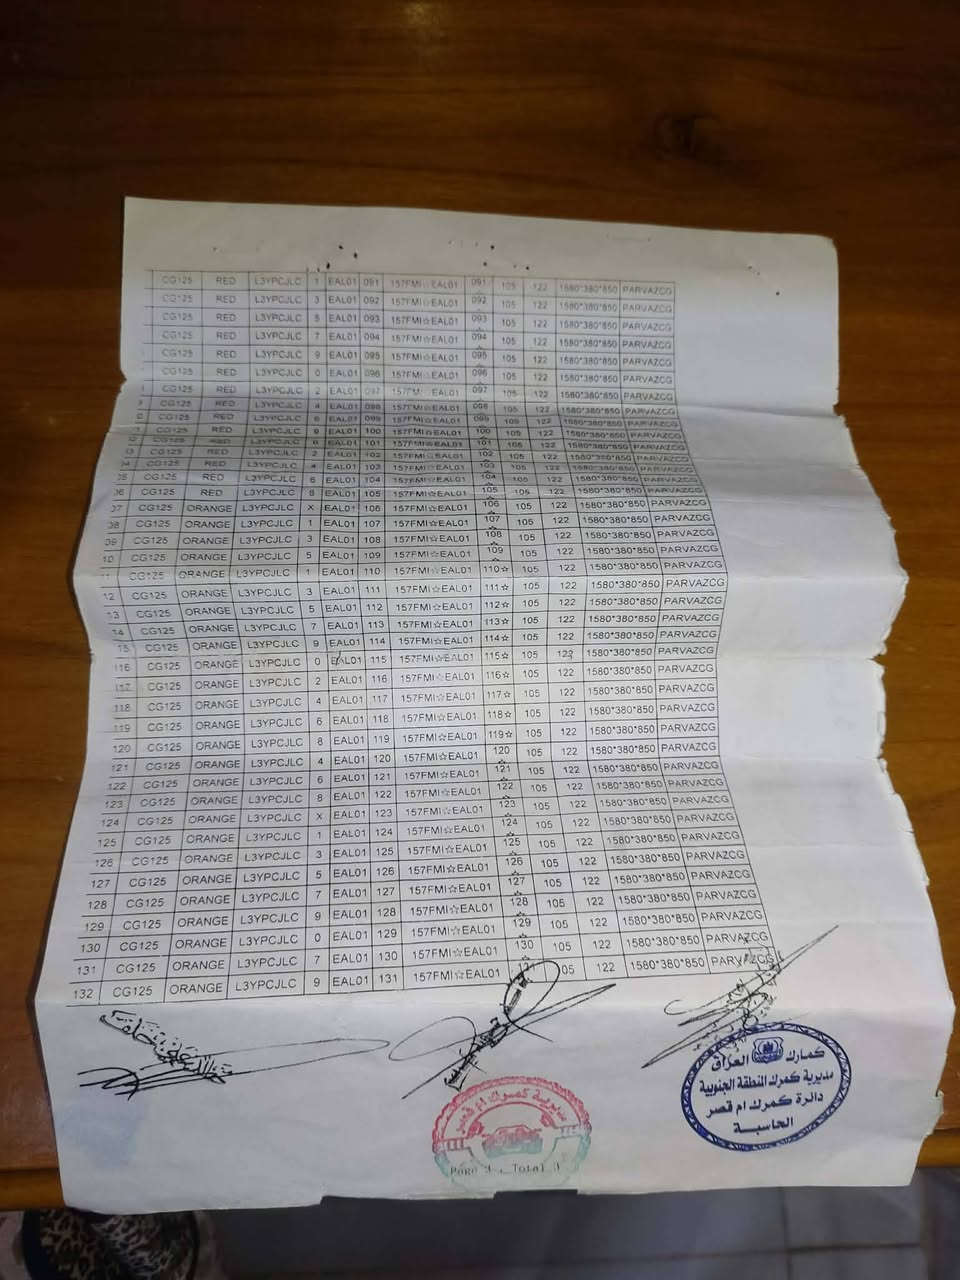 CG125 RED L3YPCJLC 1 EAL01 091 157FMI☆EAL01 091 105 122 1580*380*850 PARVAZCG
CG125 RED L3YPCJLC 3 EAL01 092 157FMI☆EAL01 092 105 122 1580*380*850 PARVAZCG
CG125 RED L3YPCJLC 5 EAL01 093 157FMI☆EAL01 093 105 122 1580*380*850 PARVAZCG
CG125 RED L3YPCJLC 7 EAL01 094 157FMI☆EAL01 094 105 122 1580*380*850 PARVAZCG
CG125 RED L3YPCJLC 9 EAL01 095 157FMI☆EAL01 095 105 122 1580*380*850 PARVAZCG
CG125 RED L3YPCJLC 0 EAL01 096 157FMI☆EAL01 096 105 122 1580*380*850 PARVAZCG
CG125 RED L3YPCJLC 2 EAL01 097 157FMI☆EAL01 097 105 122 1580*380*850 PARVAZCG
CG125 RED L3YPCJLC 4 EAL01 098 157FMI☆EAL01 098 105 122 1580*380*850 PARVAZCG
CG125 RED L3YPCJLC 6 EAL01 099 157FMI☆EAL01 099 105 122 1580*380*850 PARVAZCG
CG125 RED L3YPCJLC EAL01 100 157FMI☆EAL01 100 105 122 1580*380*850 PARVAZCG
CG125 RED L3YPCJLC EAL01 101 157FMI☆EAL01 101 105 122 1580*380*850 PARVAZCG
CG125 RED L3YPCJLC 2 EAL01 102 157FMI☆EAL01 102 105 122 1580*380*850 PARVAZCG
04 CG125 RED L3YPCJLC 4 EAL01 103 157FMI☆EAL01 103 105 122 1580*380*850 PARVAZCG
05 CG125 RED L3YPCJLC 6 EAL01 104 157FMI☆EAL01 104 105 122 1580*380*850 PARVAZCG
06 CG125 RED L3YPCJLC 8 EAL01 105 157FMI☆EAL01 105 105 122 1580*380*850 PARVAZCG
07 CG125 ORANGE L3YPCJLC X EAL01 106 157FMI☆EAL01 106 105 122 1580*380*850 PARVAZCG
08 CG125 ORANGE L3YPCJLC 1 EAL01 107 157FMI☆EAL01 107 105 122 1580*380*850 PARVAZCG
09 CG125 ORANGE L3YPCJLC 3 EAL01 108 157FMI☆EAL01 108 105 122 1580*380*850 PARVAZCG
10 CG125 ORANGE L3YPCJLC 5 EAL01 109 157FMI☆EAL01 109 105 122 1580*380*850 PARVAZCG
11 CG125 ORANGE L3YPCJLC 1 EAL01 110 157FMI☆EAL01 110☆ 105 122 1580*380*850 PARVAZCG
12 CG125 ORANGE L3YPCJLC 3 EAL01 111 157FMI☆EAL01 111☆ 105 122 1580*380*850 PARVAZCG
13 CG125 ORANGE L3YPCJLC 5 EAL01 112 157FMI☆EAL01 112☆ 105 122 1580*380*850 PARVAZCG
14 CG125 ORANGE L3YPCJLC 7 EAL01 113 157FMI☆EAL01 113☆ 105 122 1580*380*850 PARVAZCG
15 CG125 ORANGE L3YPCJLC 9 EAL01 114 157FMI☆EAL01 114☆ 105 122 1580*380*850 PARVAZCG
116 CG125 ORANGE L3YPCJLC 0 EAL01 115 157FMI☆EAL01 115☆ 105 122 1580*380*850 PARVAZCG
117 CG125 ORANGE L3YPCJLC 2 EAL01 116 157FMI☆EAL01 116☆ 105 122 1580*380*850 PARVAZCG
118 CG125 ORANGE L3YPCJLC 4 EAL01 117 157FMI☆EAL01 117☆ 105 122 1580*380*850 PARVAZCG
119 CG125 ORANGE L3YPCJLC 6 EAL01 118 157FMI☆EAL01 118☆ 105 122 1580*380*850 PARVAZCG
120 CG125 ORANGE L3YPCJLC 8 EAL01 119 157FMI☆EAL01 119☆ 105 122 1580*380*850 PARVAZCG
121 CG125 ORANGE L3YPCJLC 4 EAL01 120 157FMI☆EAL01 120☆ 105 122 1580*380*850 PARVAZCG
122 CG125 ORANGE L3YPCJLC 6 EAL01 121 157FMI☆EAL01 121☆ 105 122 1580*380*850 PARVAZCG
123 CG125 ORANGE L3YPCJLC 8 EAL01 122 157FMI☆EAL01 122☆ 105 122 1580*380*850 PARVAZCG
124 CG125 ORANGE L3YPCJLC X EAL01 123 157FMI☆EAL01 123☆ 105 122 1580*380*850 PARVAZCG
125 CG125 ORANGE L3YPCJLC 1 EAL01 124 157FMI☆EAL01 124☆ 105 122 1580*380*850 PARVAZCG
126 CG125 ORANGE L3YPCJLC 3 EAL01 125 157FMI☆EAL01 125☆ 105 122 1580*380*850 PARVAZCG
127 CG125 ORANGE L3YPCJLC 5 EAL01 126 157FMI☆EAL01 126☆ 105 122 1580*380*850 PARVAZCG
128 CG125 ORANGE L3YPCJLC 7 EAL01 127 157FMI☆EAL01 127☆ 105 122 1580*380*850 PARVAZCG
129 CG125 ORANGE L3YPCJLC 9 EAL01 128 157FMI☆EAL01 128☆ 105 122 1580*380*850 PARVAZCG
130 CG125 ORANGE L3YPCJLC 0 EAL01 129 157FMI☆EAL01 129☆ 105 122 1580*380*850 PARVAZCG
131 CG125 ORANGE L3YPCJLC 7 EAL01 130 157FMI☆EAL01 130☆ 105 122 1580*380*850 PARVAZCG
132 CG125 ORANGE L3YPCJLC 9 EAL01 131 157FMI☆EAL01 105 122 1580*380*850 PARVAZCG
كمارك العراق
مديرية كمرك المنطقة الجنوبية
دائرة كمرك ام قصر
الحاسبة
مديرية كمرك ام قصر
Page 3 , Total 3